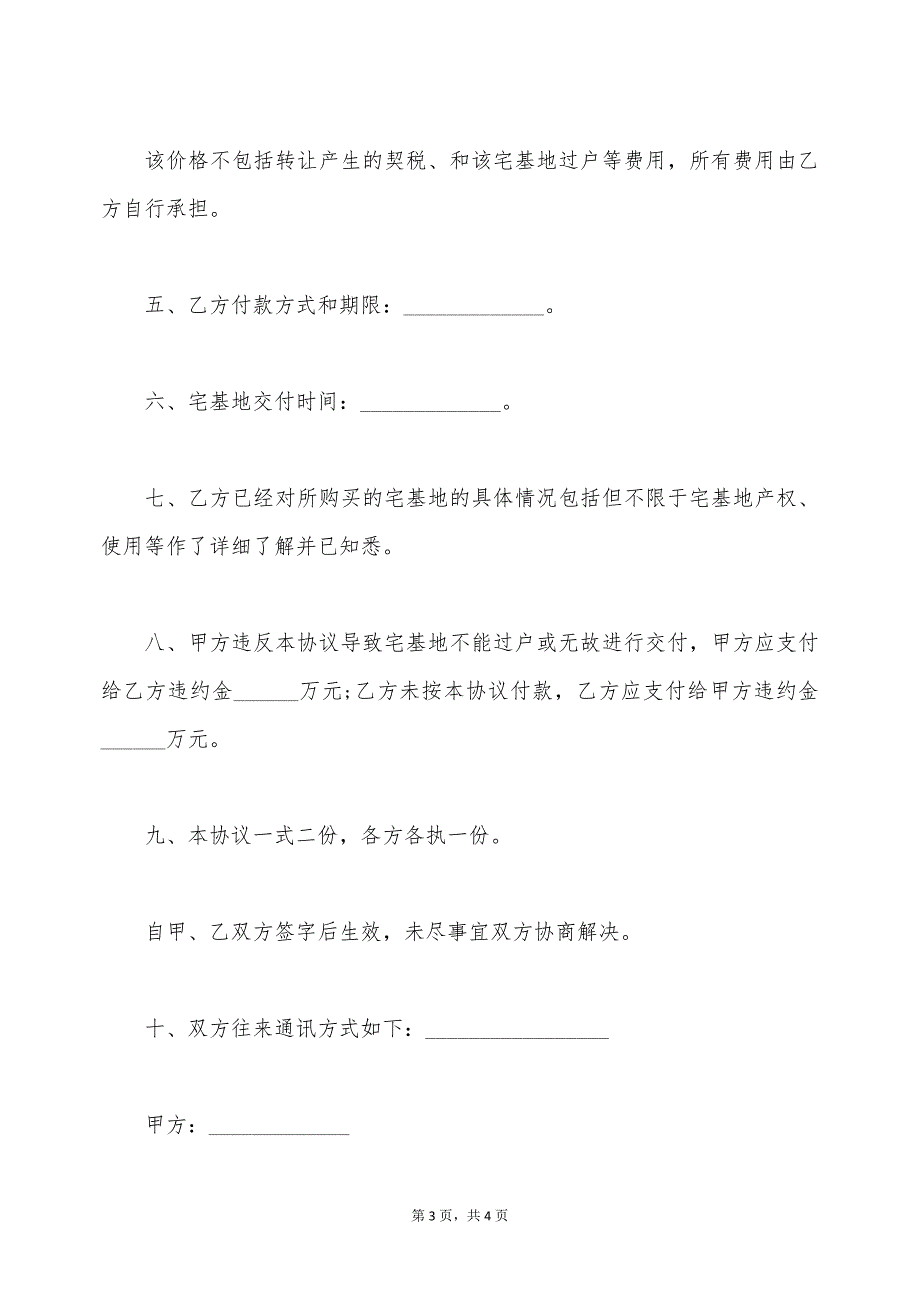 该价格不包括转让产生的契税、和该宅基地过户等费用，所有费用由乙
方自行承担。
五、乙方付款方式和期限：_____________。
六、宅基地交付时间：_____________。
七、乙方已经对所购买的宅基地的具体情况包括但不限于宅基地产权、
使用等作了详细了解并已知悉。
八、甲方违反本协议导致宅基地不能过户或无故进行交付，甲方应支付
给乙方违约金______万元;乙方未按本协议付款，乙方应支付给甲方违约金
______万元。
九、本协议一式二份，各方各执一份。
自甲、乙双方签字后生效，未尽事宜双方协商解决。
十、双方往来通讯方式如下：_________________
甲方：_____________
第 3 页，共 4 页